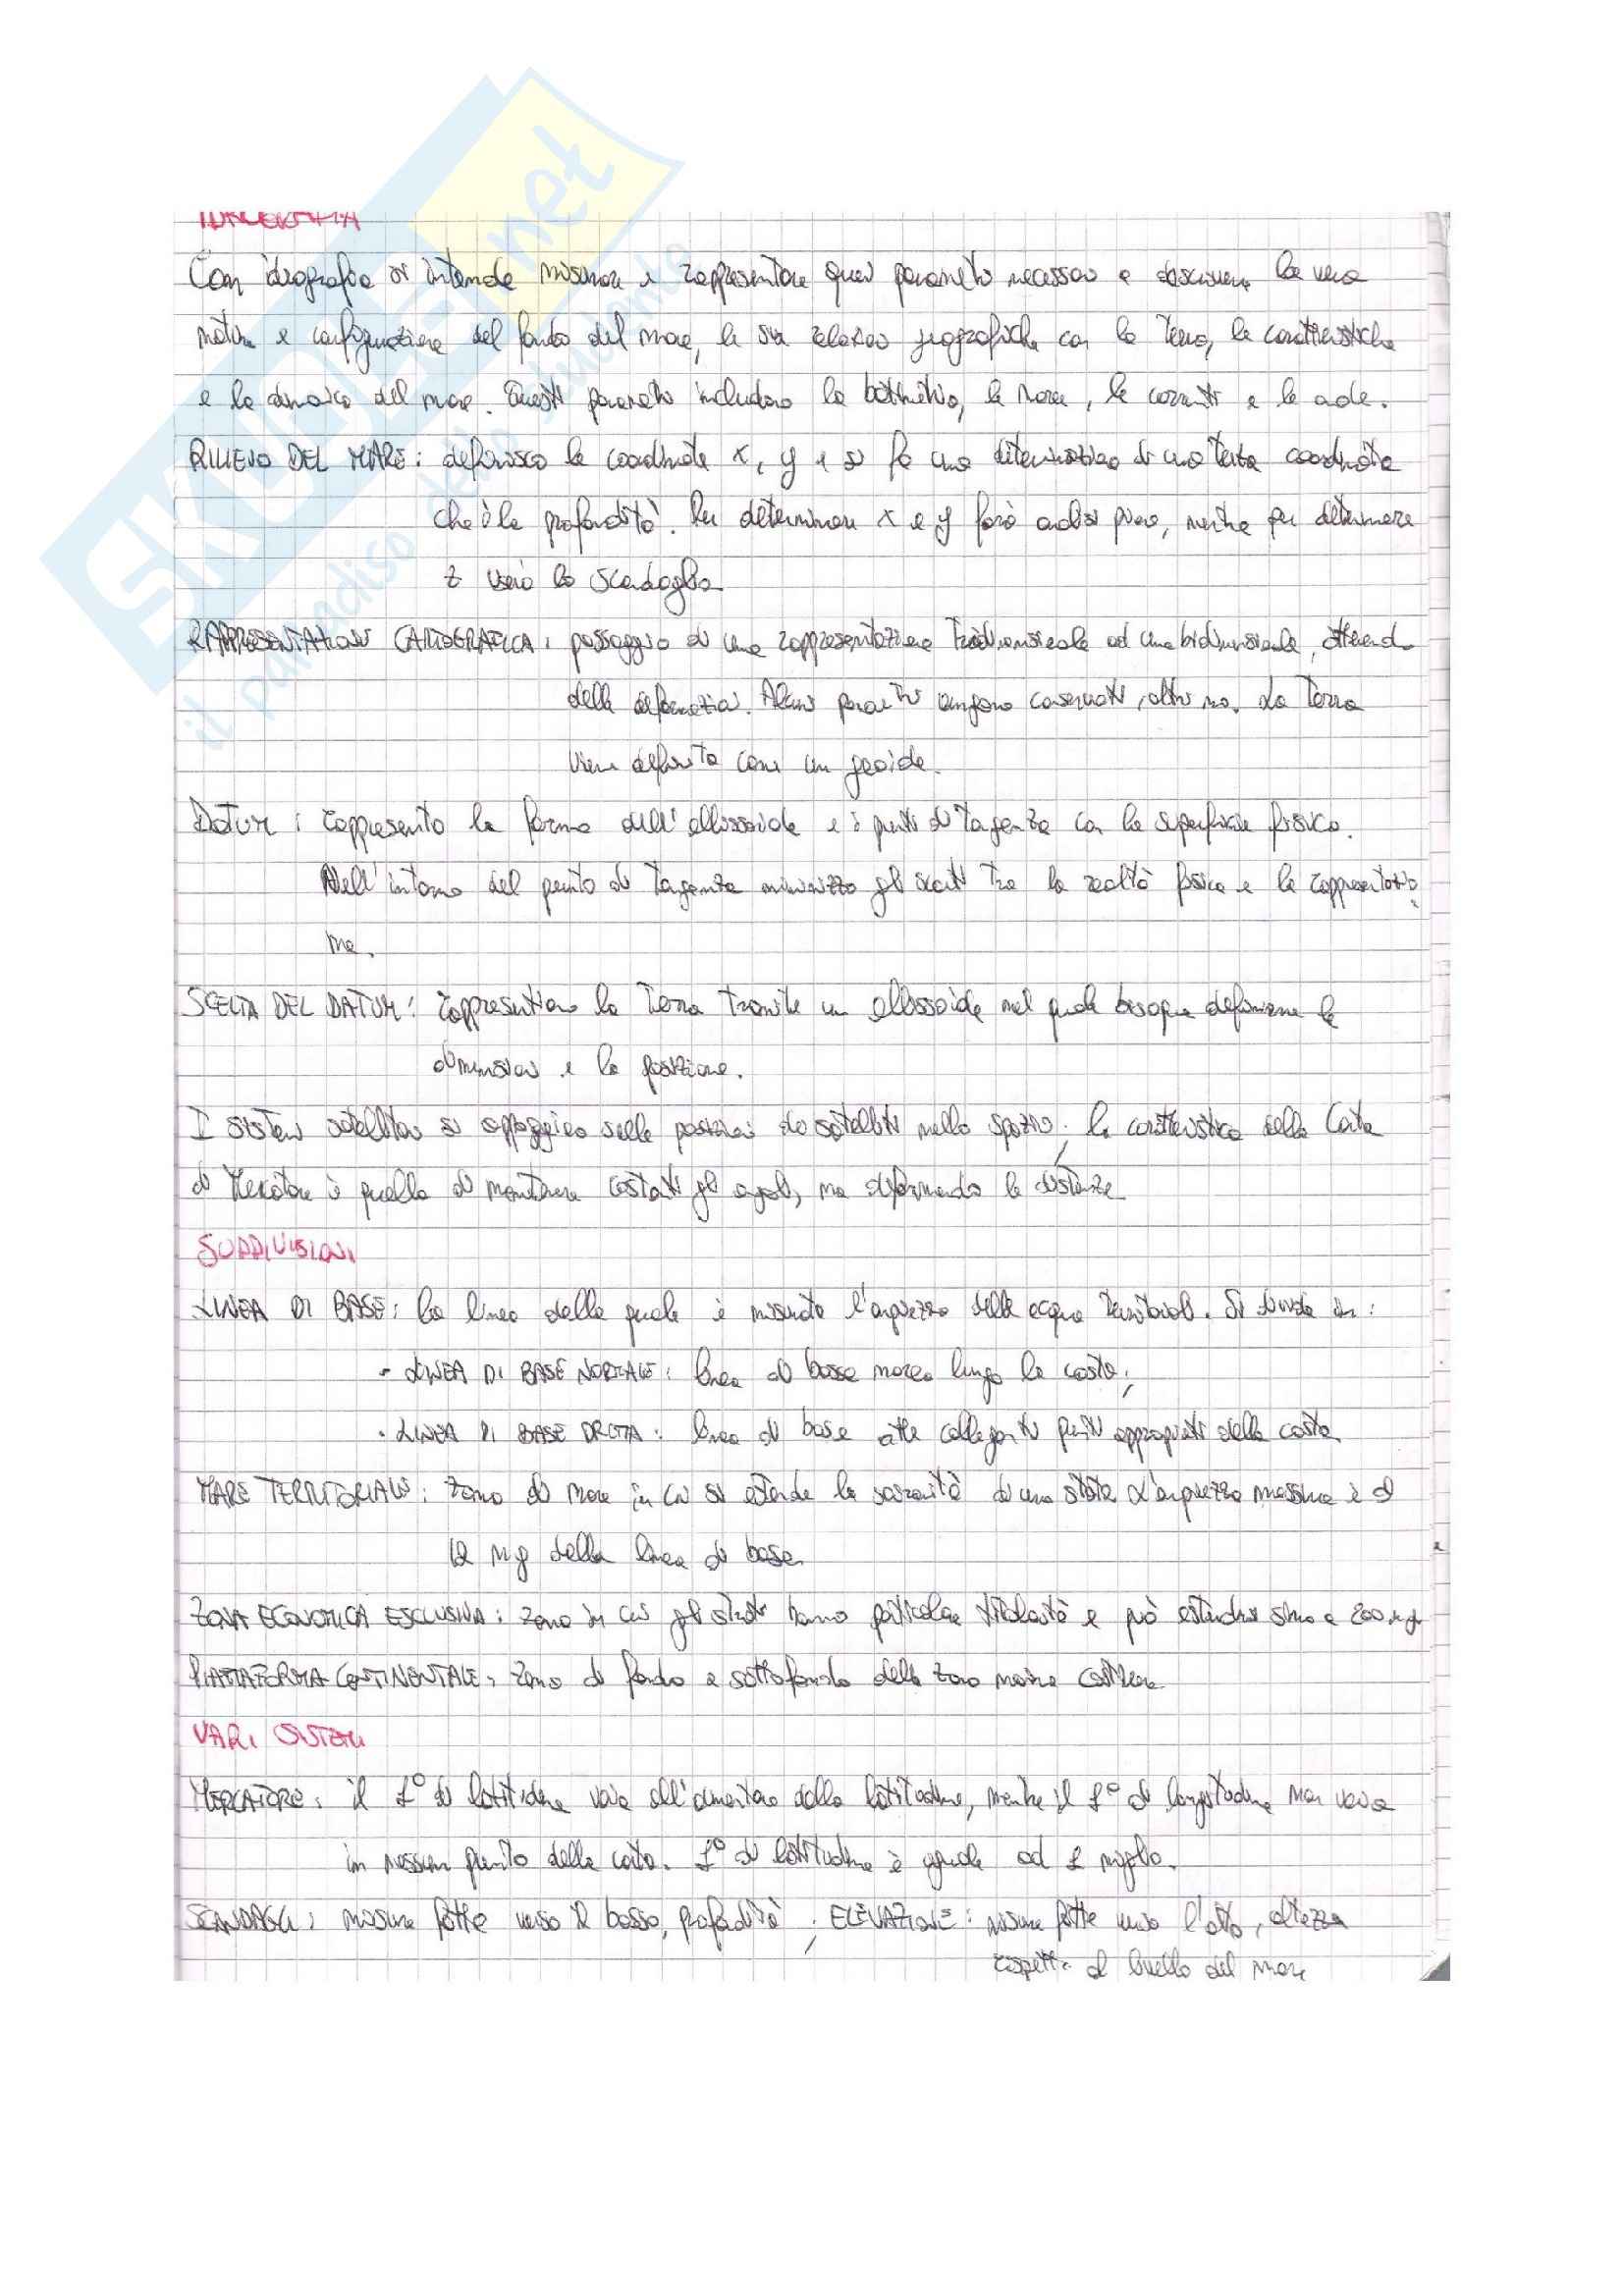 IDROGRAFIA
SKUOLA.net
il paradiso dello studente
Con idrografia si intende misurare e rappresentare quei parametri necessari a descrivere la vera
natura e configurazione del fondo del mare, le sue relazioni geografiche con la Terra, le caratteristiche
e la dinamica del mare. Questi parametri includono la batimetria, le maree, le correnti e le onde.
RILIEVO DEL MARE: definisco le coordinate x, y e si fa una determinazione di una terza coordinata
che è la profondità. Per determinare x e y farò analisi piana, mentre per determinare
z userò lo scandaglio
RAPPRESENTAZIONE CARTOGRAFICA: passaggio di una rappresentazione tridimensionale ad una bidimensionale, ottenendo
delle deformazioni. Alcuni parametri vengono conservati, altri no. La Terra
viene definita come un geoide.
DATUM: rappresenta la forma dell'ellissoide e i punti di tangenza con la superficie fisica.
Nell'intorno del punto di tangenza minimizzo gli scarti tra la realtà fisica e la rappresentazio
ne.
SCELTA DEL DATUM: rappresentiamo la Terra tramite un ellissoide nel quale bisogna definirne le
dimensioni e la posizione.
I sistemi satellitari si appoggiano sulle posizioni dei satelliti nello spazio; la caratteristica della Carta
di Mercatore è quella di mantenere costanti gli angoli, ma deformando le distanze
SUDDIVISIONI
LINEA DI BASE: la linea dalla quale è misurata l'ampiezza delle acque territoriali. Si divide in:
- LINEA DI BASE NORMALE: linea di bassa marea lungo la costa;
- LINEA DI BASE DRITTA: linea di base atte colleganti punti appropriati della costa.
MARE TERRITORIALE: zona di mare in cui si estende la sovranità di uno stato. L'ampiezza massima è di
12 mg dalla linea di base.
ZONA ECONOMICA ESCLUSIVA: zona in cui gli stati hanno particolare titolarità e può estendersi sino a 200 mg
PIATTAFORMA CONTINENTALE: zona di fondo e sottofondo della zona marina costiera
VARI SISTEMI
MERCATORE: il 1° di latitudine varia all'aumentare della latitudine, mentre il 1° di longitudine non varia
in nessun punto della carta. 1° di latitudine è uguale ad 1 miglio.
SCANDAGLI: misure fatte verso il basso, profondità; ELEVAZIONE: misure fatte verso l'alto, altezza
rispetto al livello del mare